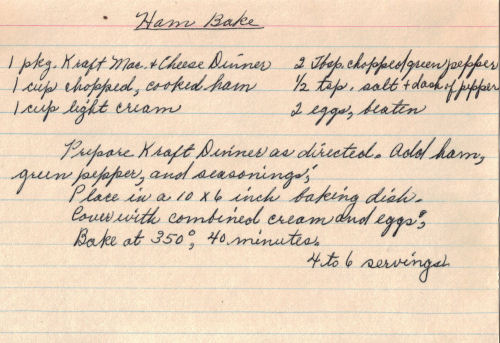 Ham Bake
1 pkg. Kraft Mac. & Cheese Dinner 2 Tbsp. chopped green pepper
1 cup chopped, cooked ham 1/2 tsp. salt & dash of pepper
1 cup light cream 2 eggs, beaten
Prepare Kraft Dinner as directed. Add ham,
green pepper, and seasonings;
Place in a 10 x 6 inch baking dish.
Cover with combined cream and eggs;
Bake at 350°, 40 minutes.
4 to 6 servings